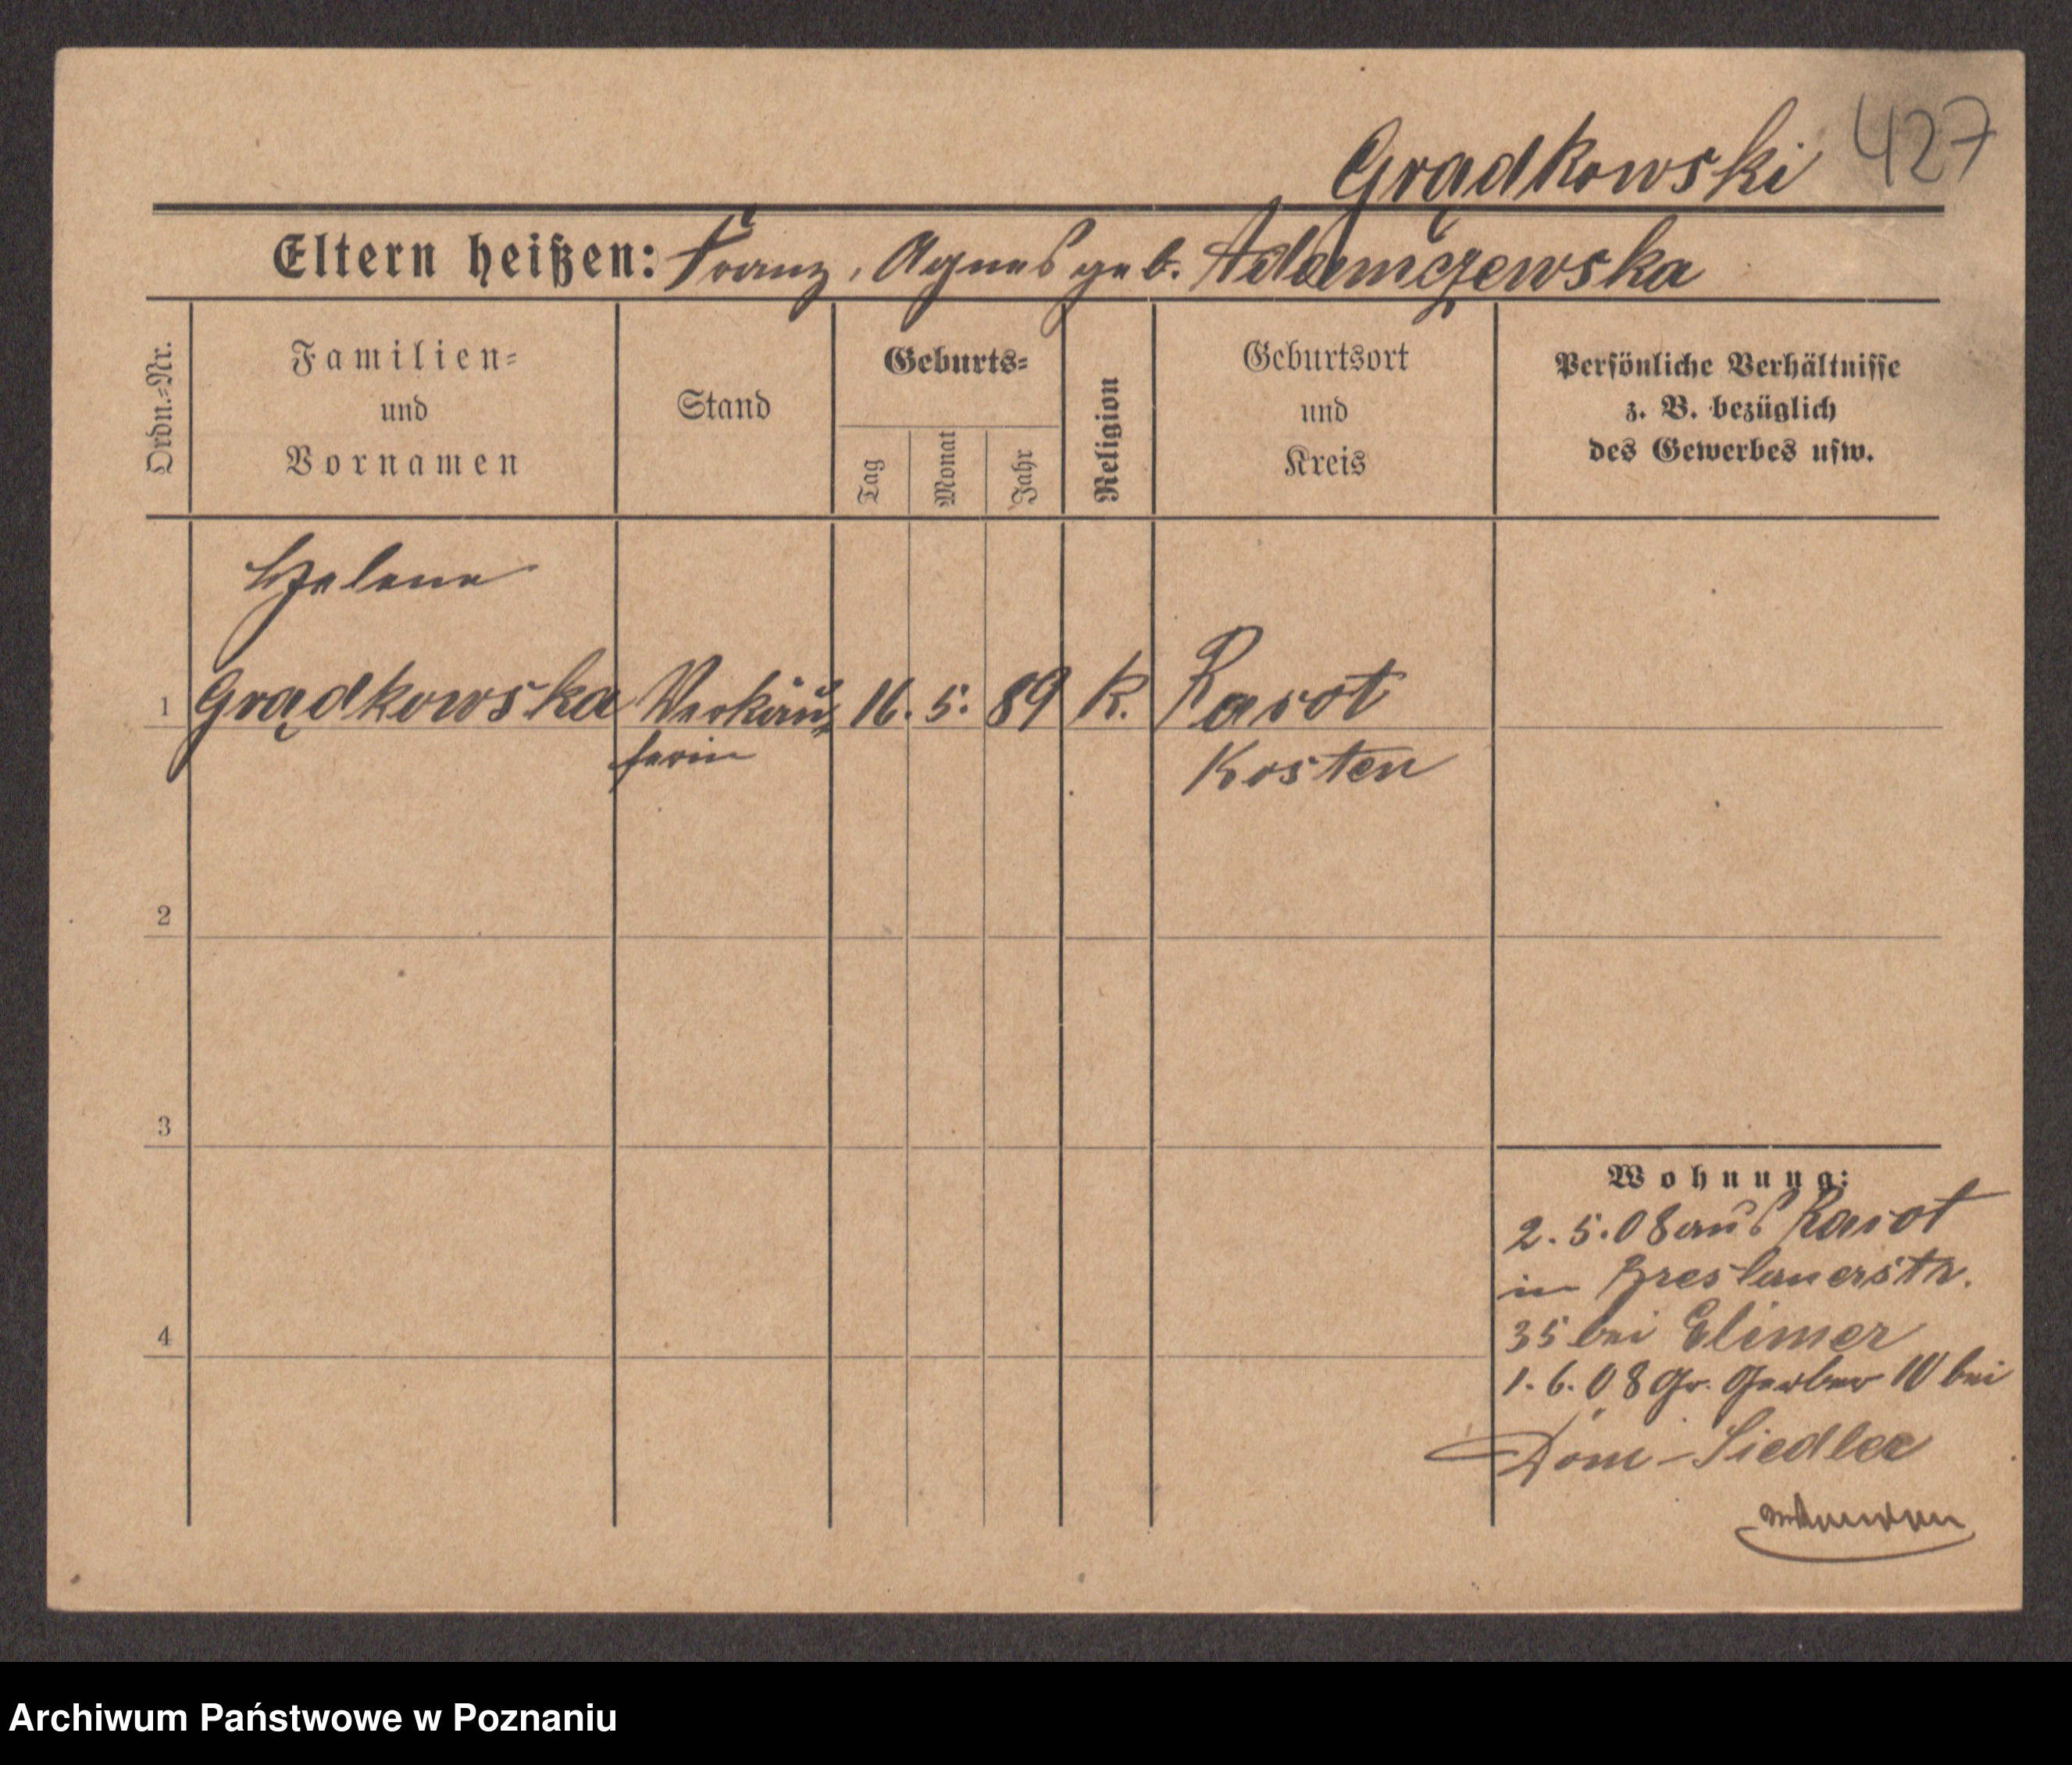 Grądkowski 427
Eltern heißen: Franz, Agnes geb. Adamczewska
Ordn.=Nr.
Familien=
und
Vornamen
Stand
Geburts=
Tag
Monat
Jahr
Religion
Geburtsort
und
Kreis
Persönliche Verhältnisse
z. B. bezüglich
des Gewerbes usw.
Helene
1 Grądkowska Verkäu= 16. 5. 89 K. Rasot
ferin Kosten
2
3
4
Wohnung:
2. 5. 08 aus Rasot
in Breslauerstr.
35 bei Elimer
1. 6. 08 Gr. Gerber 10 bei
Dom-Siedler
Archiwum Państwowe w Poznaniu